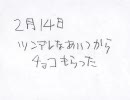 2月14日
ツンデレなあいつから
チョコもらった